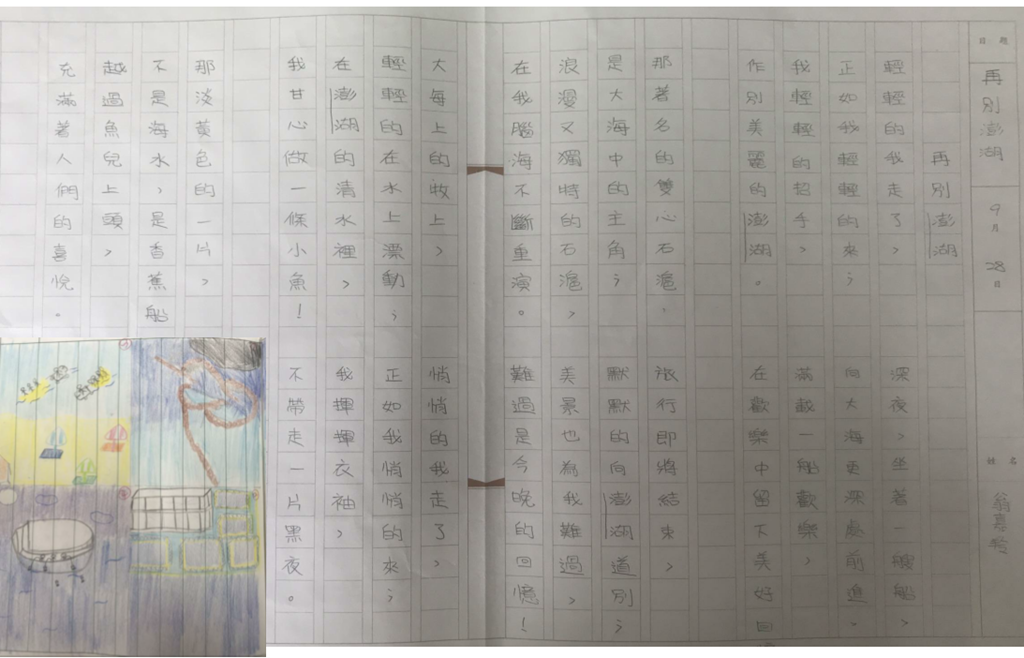 題目
再別澎湖
9月28日
姓名
翁嘉
再別澎湖
輕輕的我走了,
正如我輕輕的來;
我輕輕的招手,
作別美麗的澎湖。
那著名的雙心石滬,
是大海中的主角;
浪漫又獨特的石滬,
在我腦海不斷重演。
大每上的牧上,
輕輕的在水上漂動;
在澎湖的清水裡,
我甘心做一條小魚!
那淡黃色的一片,
不是海水,是香蕉船
越過魚兒上頭,
充滿著人們的喜悅。
深夜,坐著一艘船,
向大海更深處前進。
滿載一船歡樂,
在歡樂中留下美好回
旅行即將結束,
默默的向澎湖道別;
美景也為我難過,
難過是今晚的回憶!
悄悄的我走了,
正如我悄悄的來;
我揮揮衣袖,
不帶走一片黑夜。